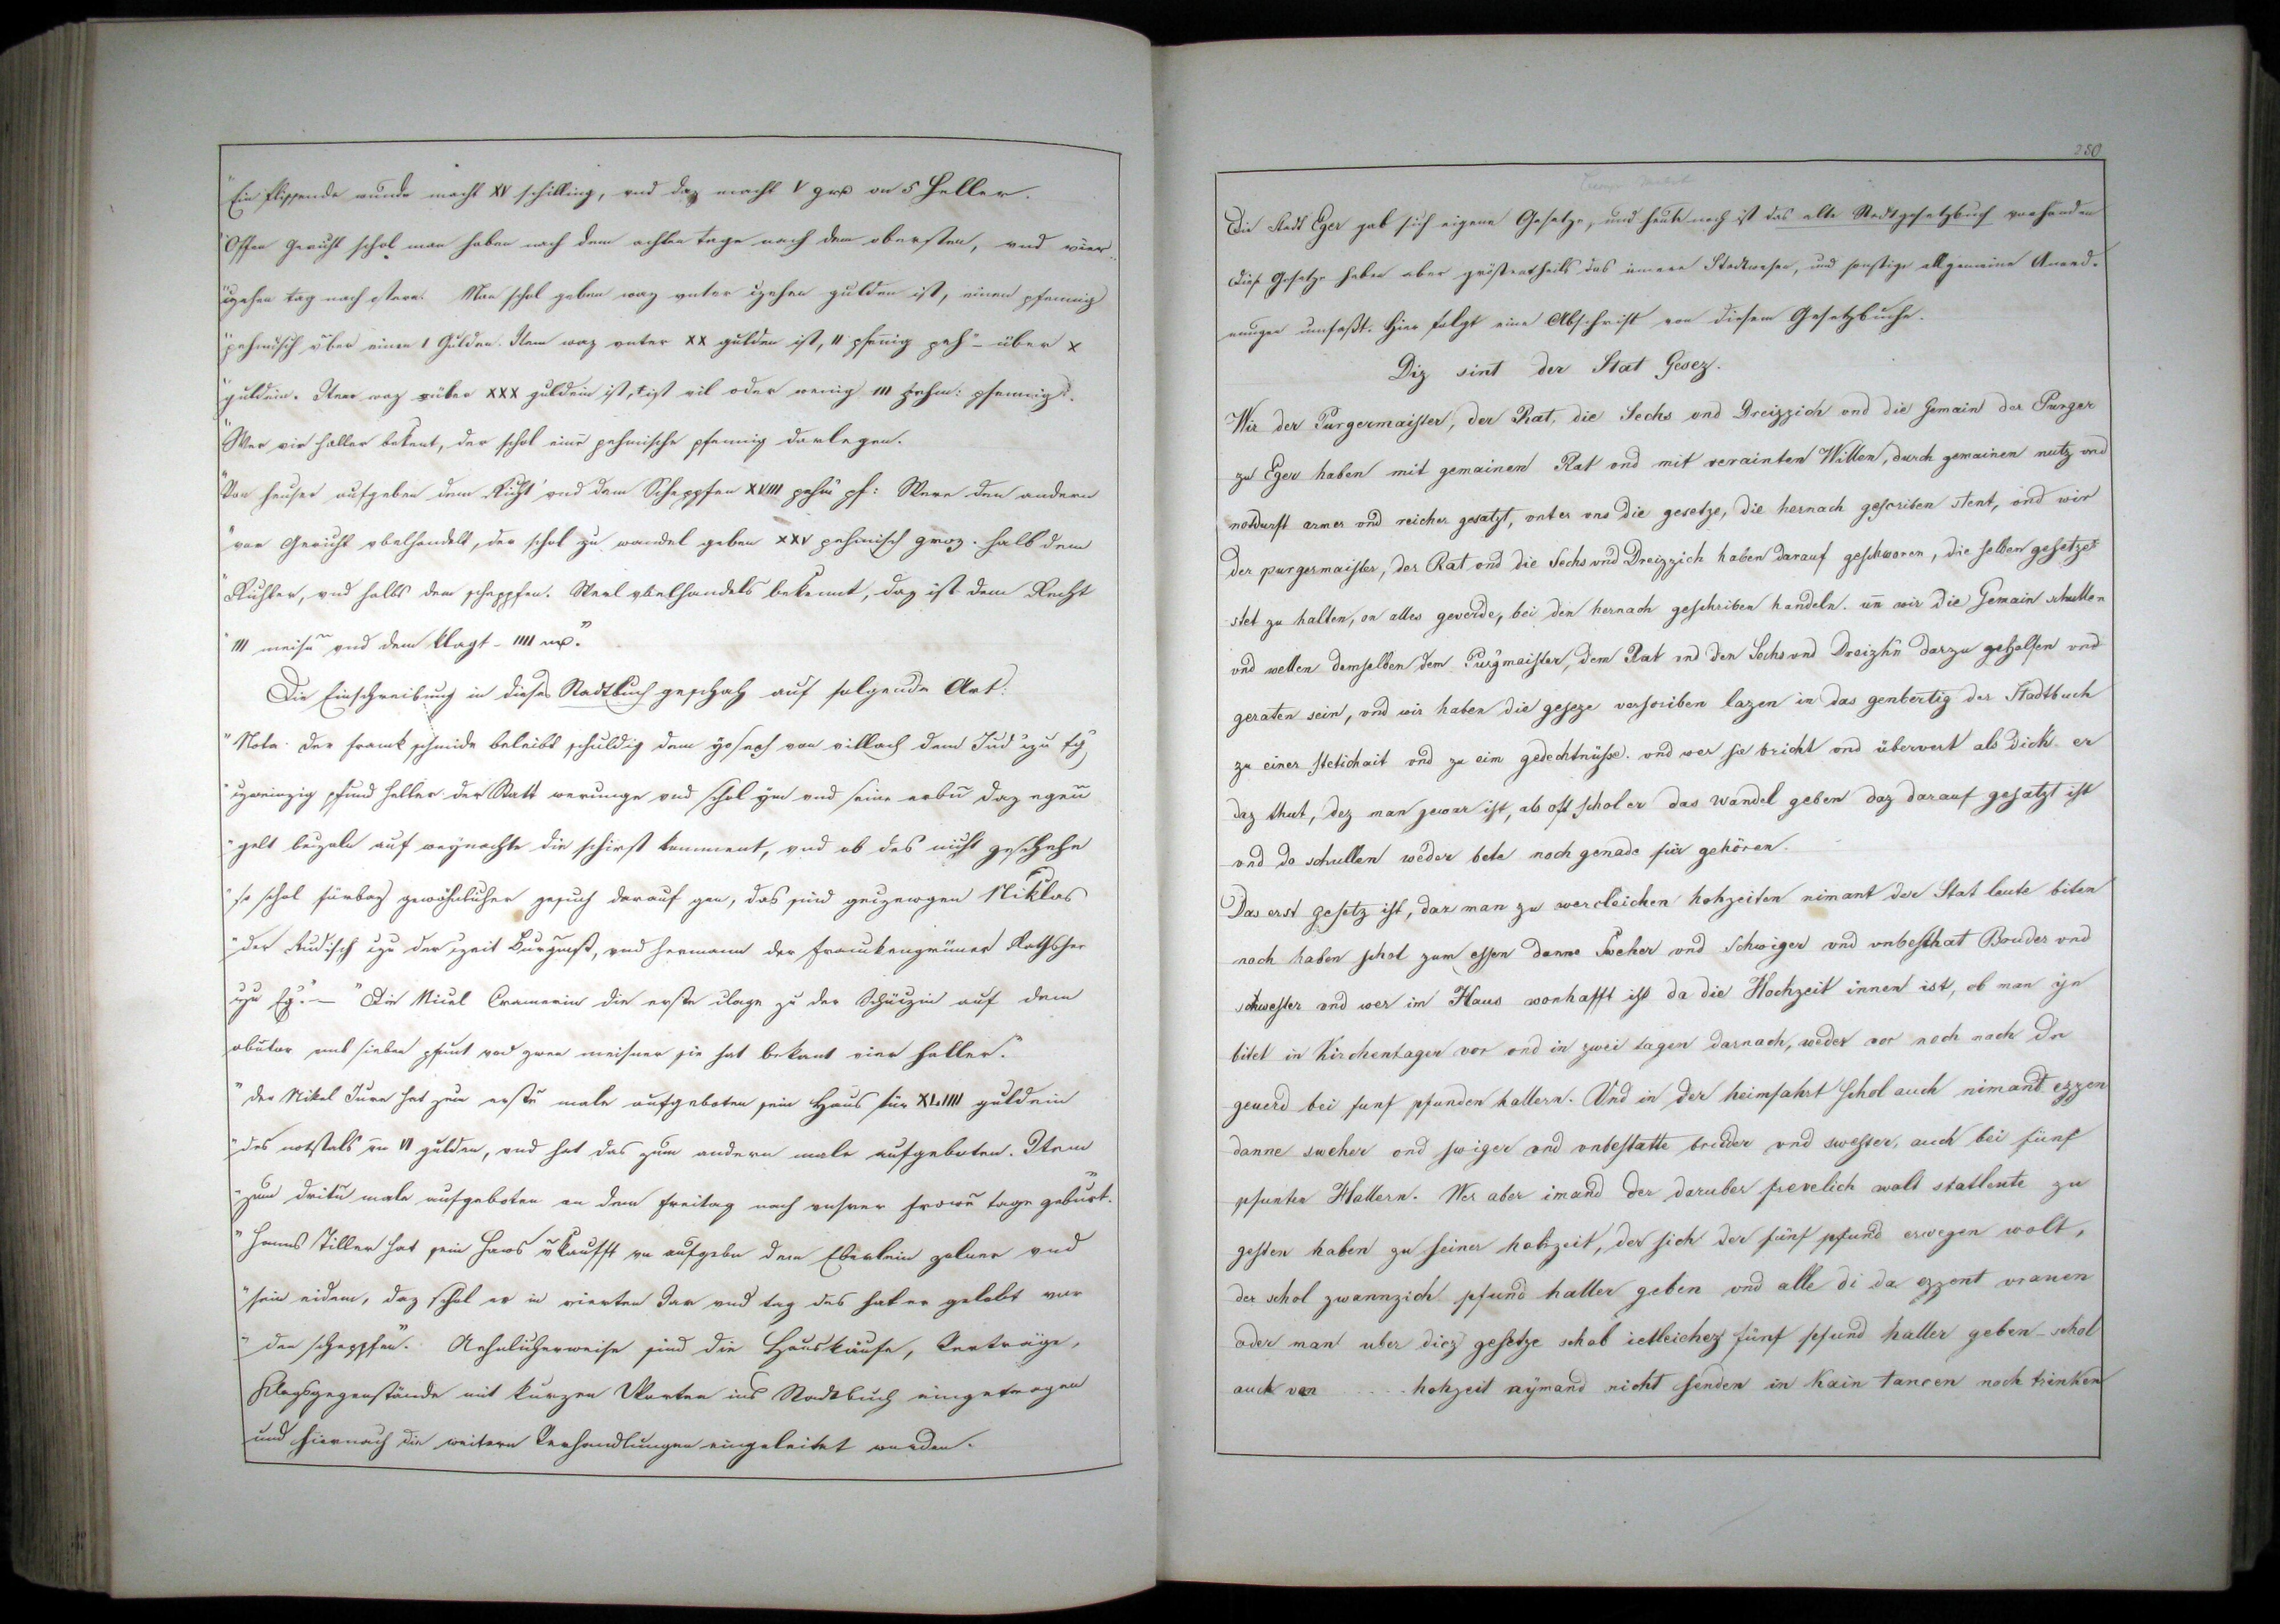 "Ein flissende wunde macht XV schilling, vnd daz macht V grß on 5 Heller.
"Offen Gericht schol man haben nach dem achten tage nach dem obersten, vnd vier-
"zehen tag nach ostern. Man schol geben waz vnter zehen gulden ist, einen pfennig
"pehmisch über einen 1 Gulden. Item waz vnter XX gulden ist, II pfenig peh– über X
"guldein. Item waz über XXX guldein ist, ist vil oder wenig III pehm: pfennig.
"Wer vir haller bekent, der schol einē pehmische pfennig darlegen.
"Von heuser aufgeben dem Richt' vnd dem Scheppfen XVIII pehm pf: Wer den andern
"vor Gericht vbelhandelt, der schol zu wandel geben XXV pehmisch groz. halb dem
"Richter, vnd halbs dem scheppfen. Wer vbelhandels bekennt, daz ist dem Recht
"III meisn vnd dem klagt – IIII
Die Einschreibung in dieses Stadtbuch geschah auf folgende Art:
"Nota. der frank schmide beleibt schuldig dem yoseph von villach dem Jud zu Eg'
"zweinzig pfund haller der Statt werunge vnd schol ym vnd seine erbn daz egen
"gelt bezaln auf weynachte die schirst komment, vnd ob des nicht geschehe
"so schol fürbaz gewöhnlicher gesuch darauf gen, das sind gezewgen Niklas
"der Rudisch zu der zeit Burgmst, vnd Hermann der frankengrüner Rathsher
zu Eg'." – "Die Nicel Cramerin die erste clage zu der Schüczin auf dem
vmb sieben pfunt vnd zwen meisner sie hat bekant vier haller."
"der Nikel Turn hat zum erstn male aufgeboten sein Haus für XLIIII guldein
"des notstals vn VI gulden, vnd hat das zum andern male aufgeboten. Item
"zum dritn male aufgeboten an dem freitag nach vnser frowe tage geburt.
"Hanns Tiller hat sein Haws v'kaufft vn aufgebn dem Eberlein zolner vnd
"sein eidem, daz schol er in vierten Jar vnd tag des hat er gelobt vor
"den scheppfen". Aehnlicherweise sind die Hauskäufe, Verträge,
Klagsgegenstände mit kurzen Worten ins Stadtbuch eingetragen
und hiernach die weitern Verhandlungen eingeleitet worden.
280
Die Stadt Eger gab sich eigene Gesetze, und heute noch ist das alte Stadtgesetzbuch vorhanden
Diese Gesetze haben aber größtentheils das innere Stadtwesen, und sonstige allgemeine Anord-
nungen umfaßt. Hier folgt eine Abschrift von diesem Gesetzbuche.
Diz sint der Stat Gesez.
Wir der Purgermaister, der Rat, die Sechs vnd Dreizzich vnd die Gemain der Purger
zu Eger haben mit gemainen Rat vnd mit verainten Willen, durch gemainen nutz vnd
notdurft armer vnd reicher gesatzt, vnter vns die gesetze, die hernach gescriben stent, vnd wir
der purgermaister, der Rat vnd die Sechs vnd Dreizzich haben darauf geschworen, die selben gesetze
stet zu halten, on alles geverde, bei den hernach geschriben handeln. un wir die Gemain schullen
vnd wellen demselben dem Purgmaister, dem Rat vnd den Sechs vnd Dreizhn darzu geholfen vnd
geraten sein, vnd wir haben die geseze verscriben lazen in das genbertig der Stadtbuch
zu einer stetichait vnd zu eim gedechtnüsse. vnd wer sie bricht vnd übervert als dick er
daz thut, dez man gewar ist, als oft schol er das wandel geben daz darauf gesatzt ist
vnd do schullen weder bete noch genade für gehören.
Das erst gesetz ist, daz man zu wercleichen hohzeiten nimant der Stat leute biten
noch haben schol zum essen danne Sweher vnd Schwiger vnd vnbesthat Bruder vnd
schwester vnd wer im Haus wonhafft ist da die Hochzeit innen ist, ob man yn
bitet in Kirchentagen vor vnd in zwei tagen darnach, weder vor noch nach On
geuerd bei funf pfunden hallern. Vnd in der heimfahrt schol auch nimant ezzen
danne sweher vnd swiger vnd vnbestatte bruder vnd swester, auch bei fünf
pfunten Hallern. Wer aber imand der daruber frevelich wolt statleute zu
gesten haben zu seiner hohzeit, der sich der fünf pfund erwegen wolt,
der schol zwannzich pfund haller geben vnd alle di da ezzent vrauen
oder man uber dicz gesetze schol ietleichez fünf pfund haller geben – schol
auch von ..... hohzeit nymand nicht senden in kain tancen noch trinken